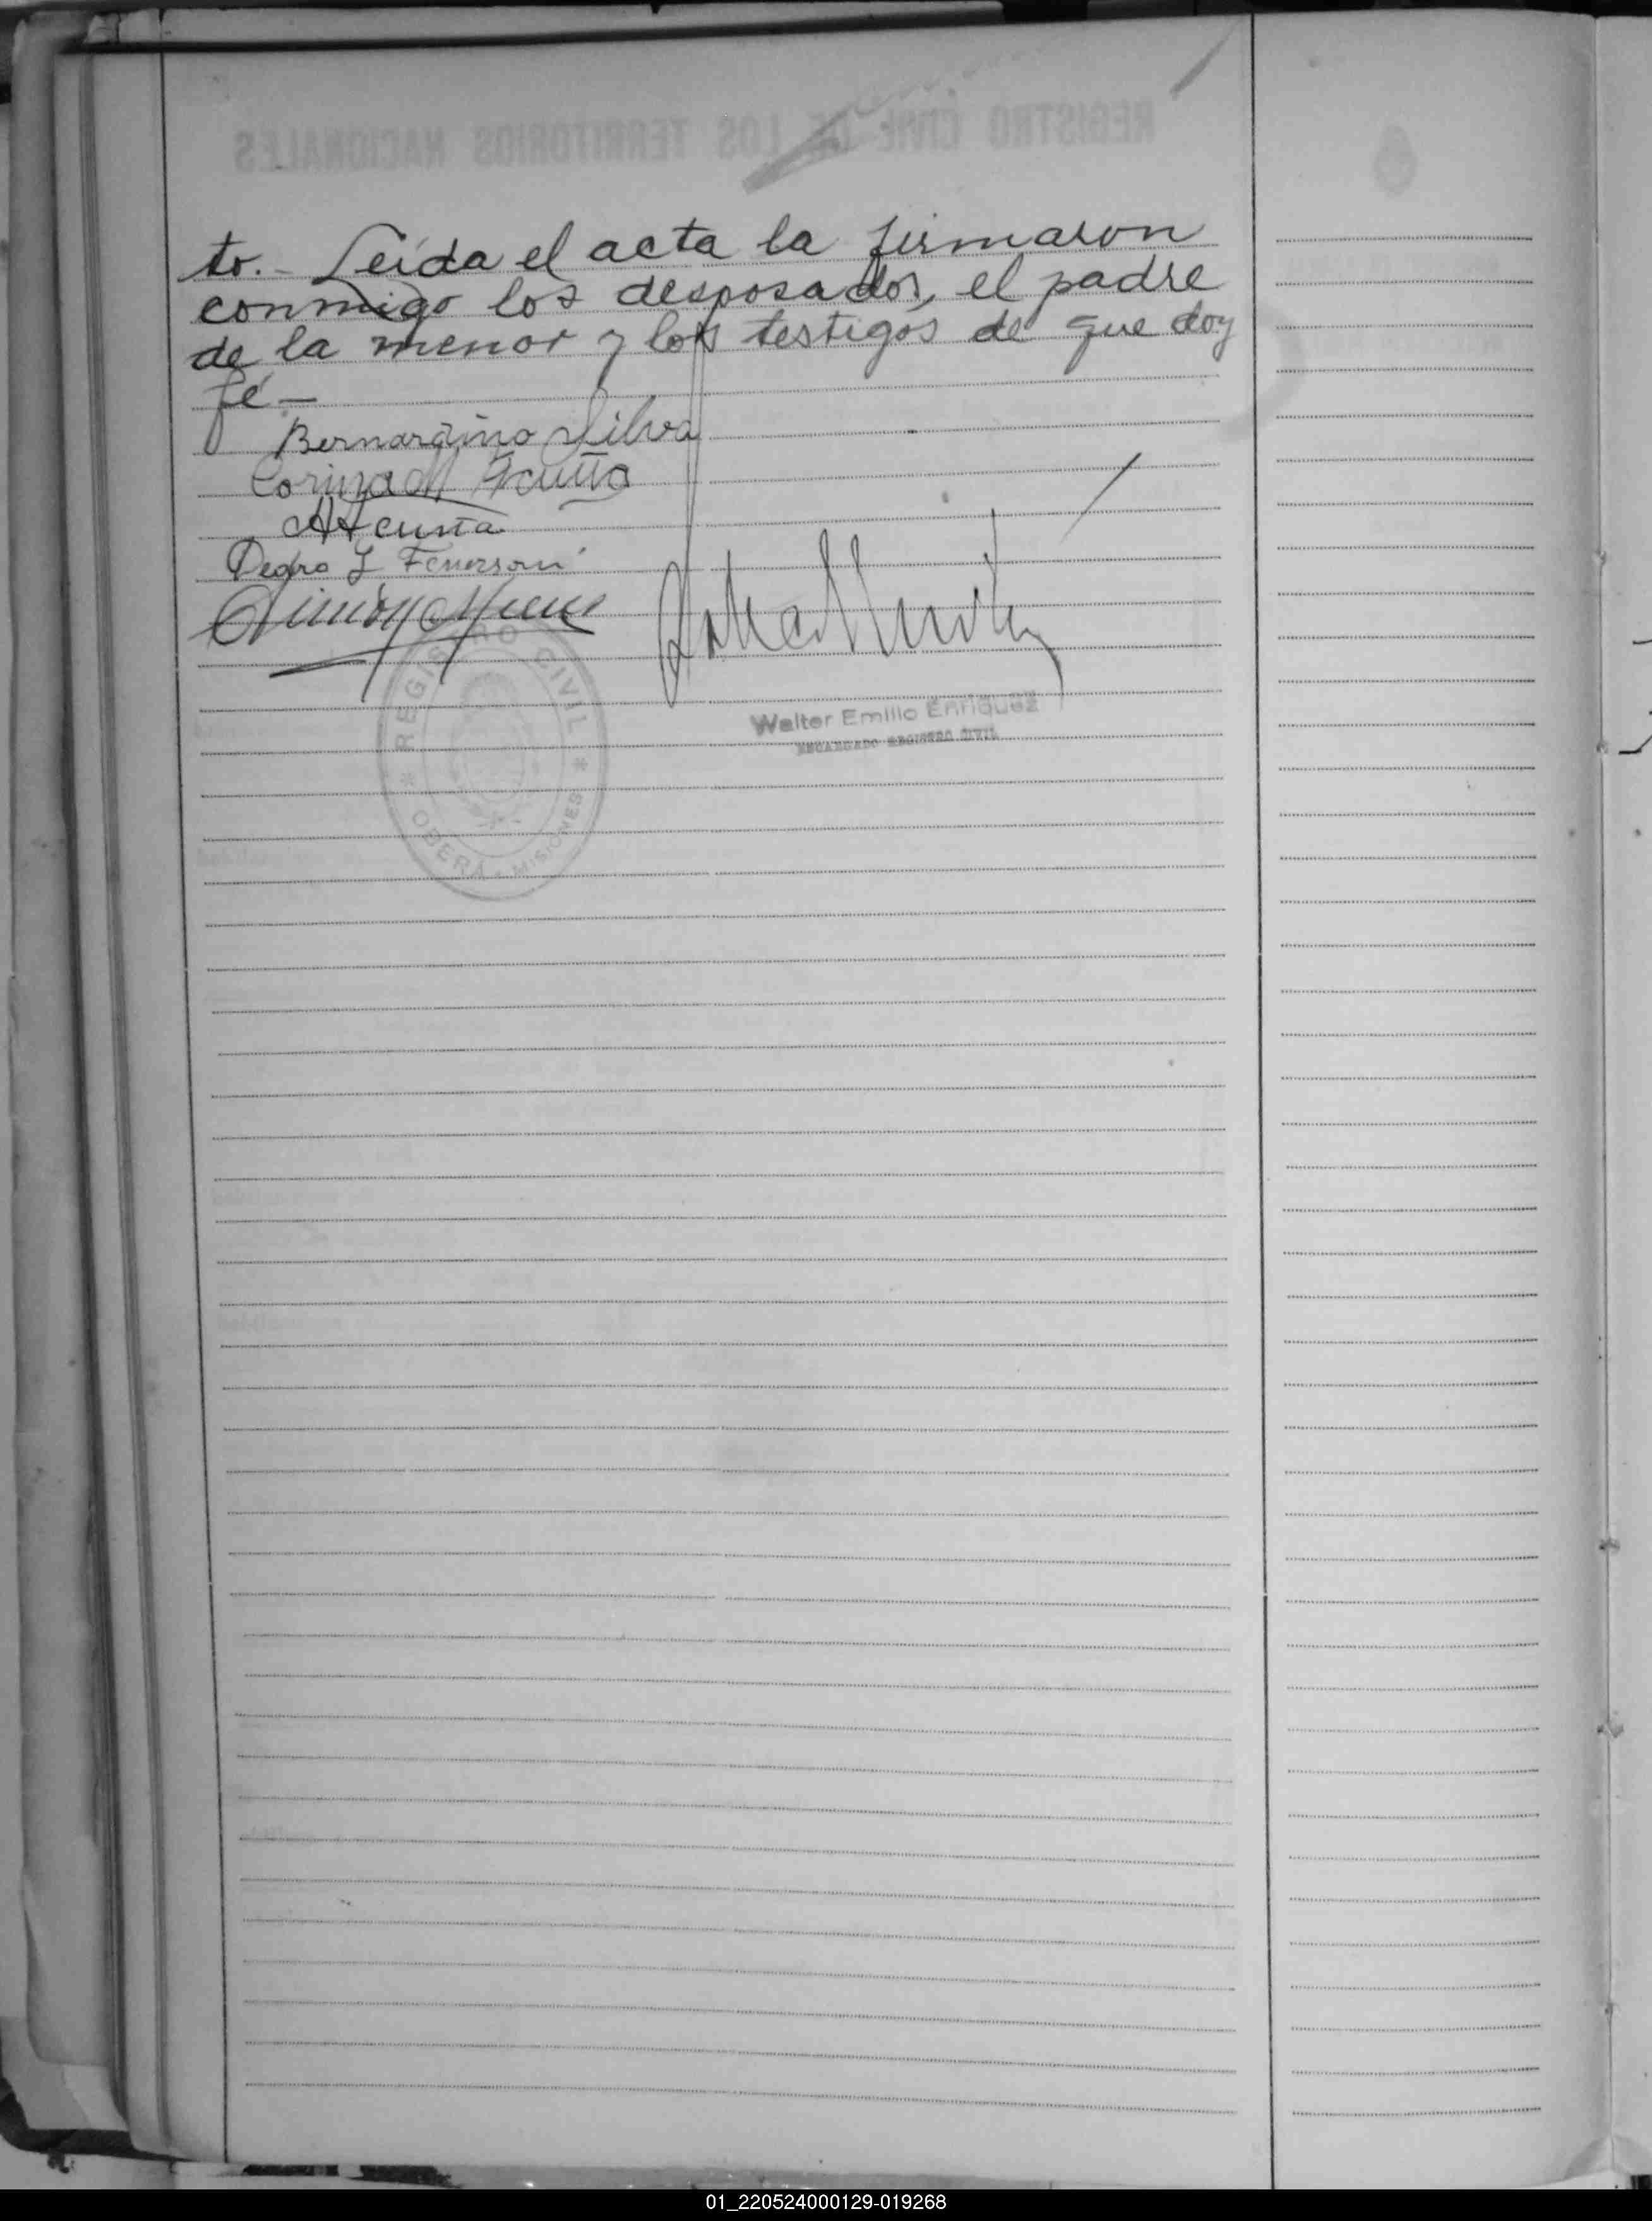 REGISTRO CIVIL DE LOS TERRITORIOS NACIONALES
to.- Leída el acta la firmaron
conmigo los desposados, el padre
de la menor y los testigos de que doy
fé-
Bernardino Silva
Acuña
Acuña
Pedro
Walter Emilio Enriquez
ENCARGADO REGISTRO CIVIL
REGISTRO CIVIL
* OBERA - MISIONES *
01_220524000129-019268